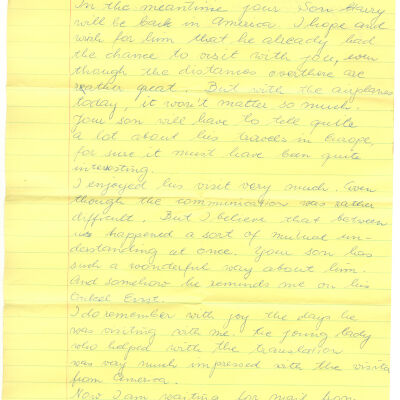 In the meantime your Son Harry
will be back in America. I hope and
wish for him that he already had
the chance to visit with you, even
though the distances overthere are
rather great. But with the airplanes
today, it won't matter so much.
Your son will have to tell quite
a lot about his travels in Europe,
for sure it must have been quite
interesting.
I enjoyed his visit very much. Even
though the communication was rather
difficult. But I believe that between
us happened a sort of mutual un-
derstanding at once. Your son has
such a wonderful way about him.
And somehow he reminds me on his
Unkel Ernst.
I do remember with joy the days he
was visiting with me. The young lady
who helped with the translation
was very much impressed with the visitor
from America.
Now I am waiting for mail from